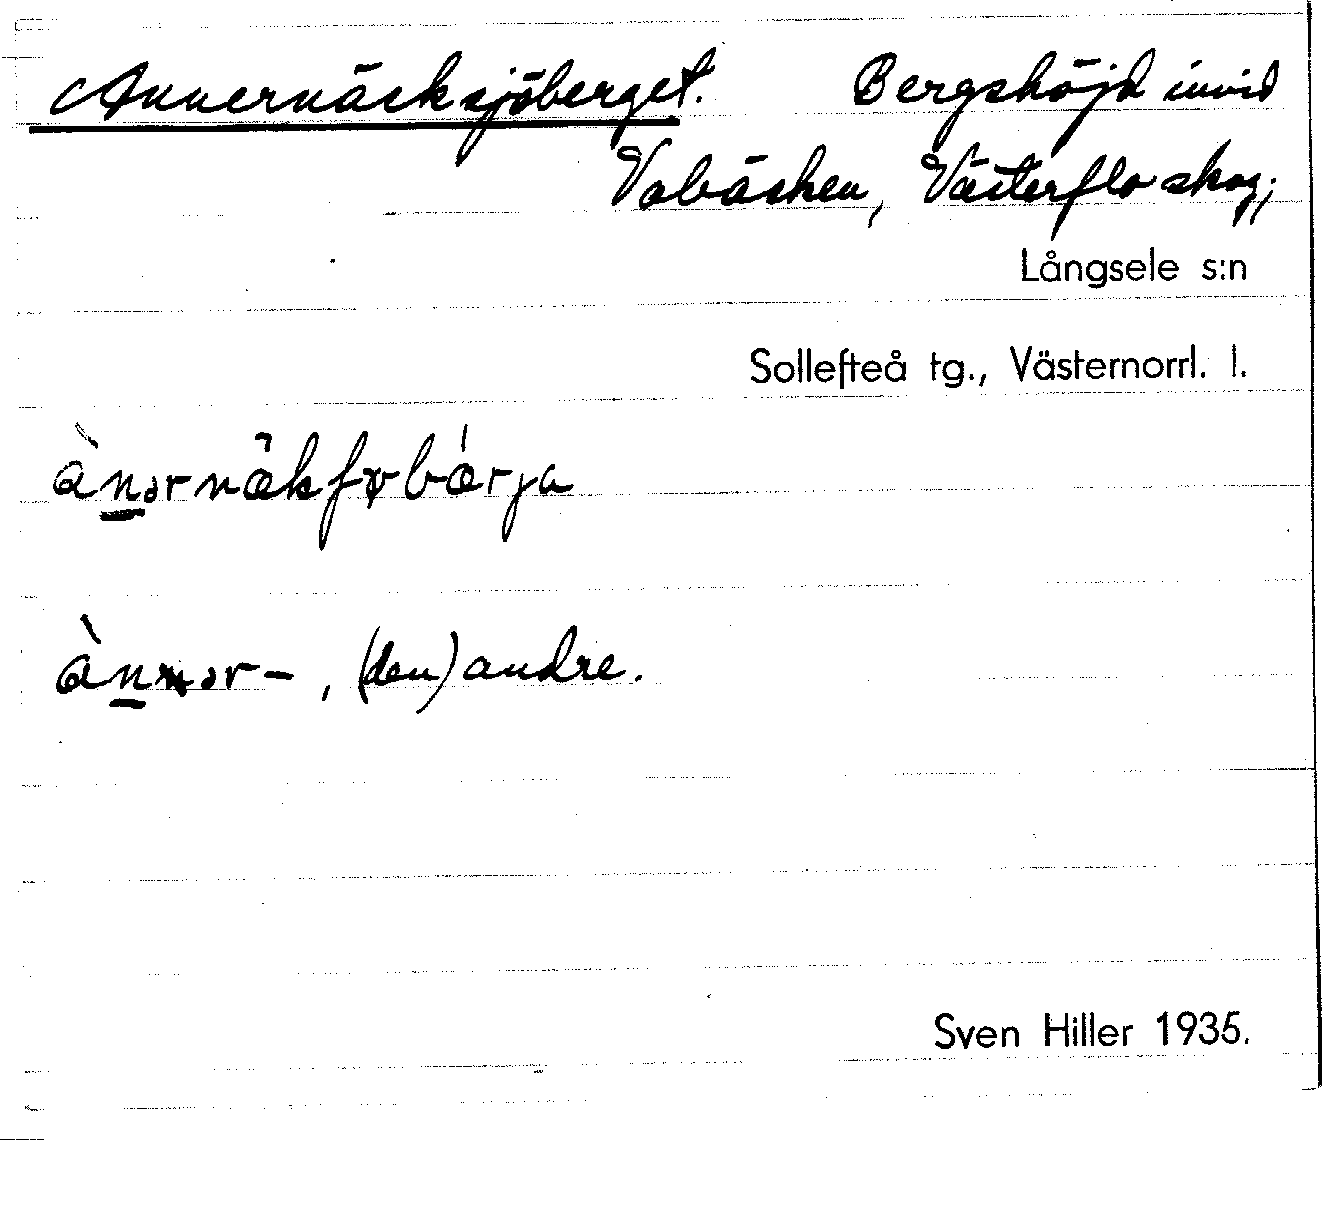 Annernäcksjöberget. Bergshöjd invid
Vabäcken, Västerflo skog;
Långsele s:n
Sollefteå tg., Västernorrl. l.
(den) andre.
Sven Hiller 1935.